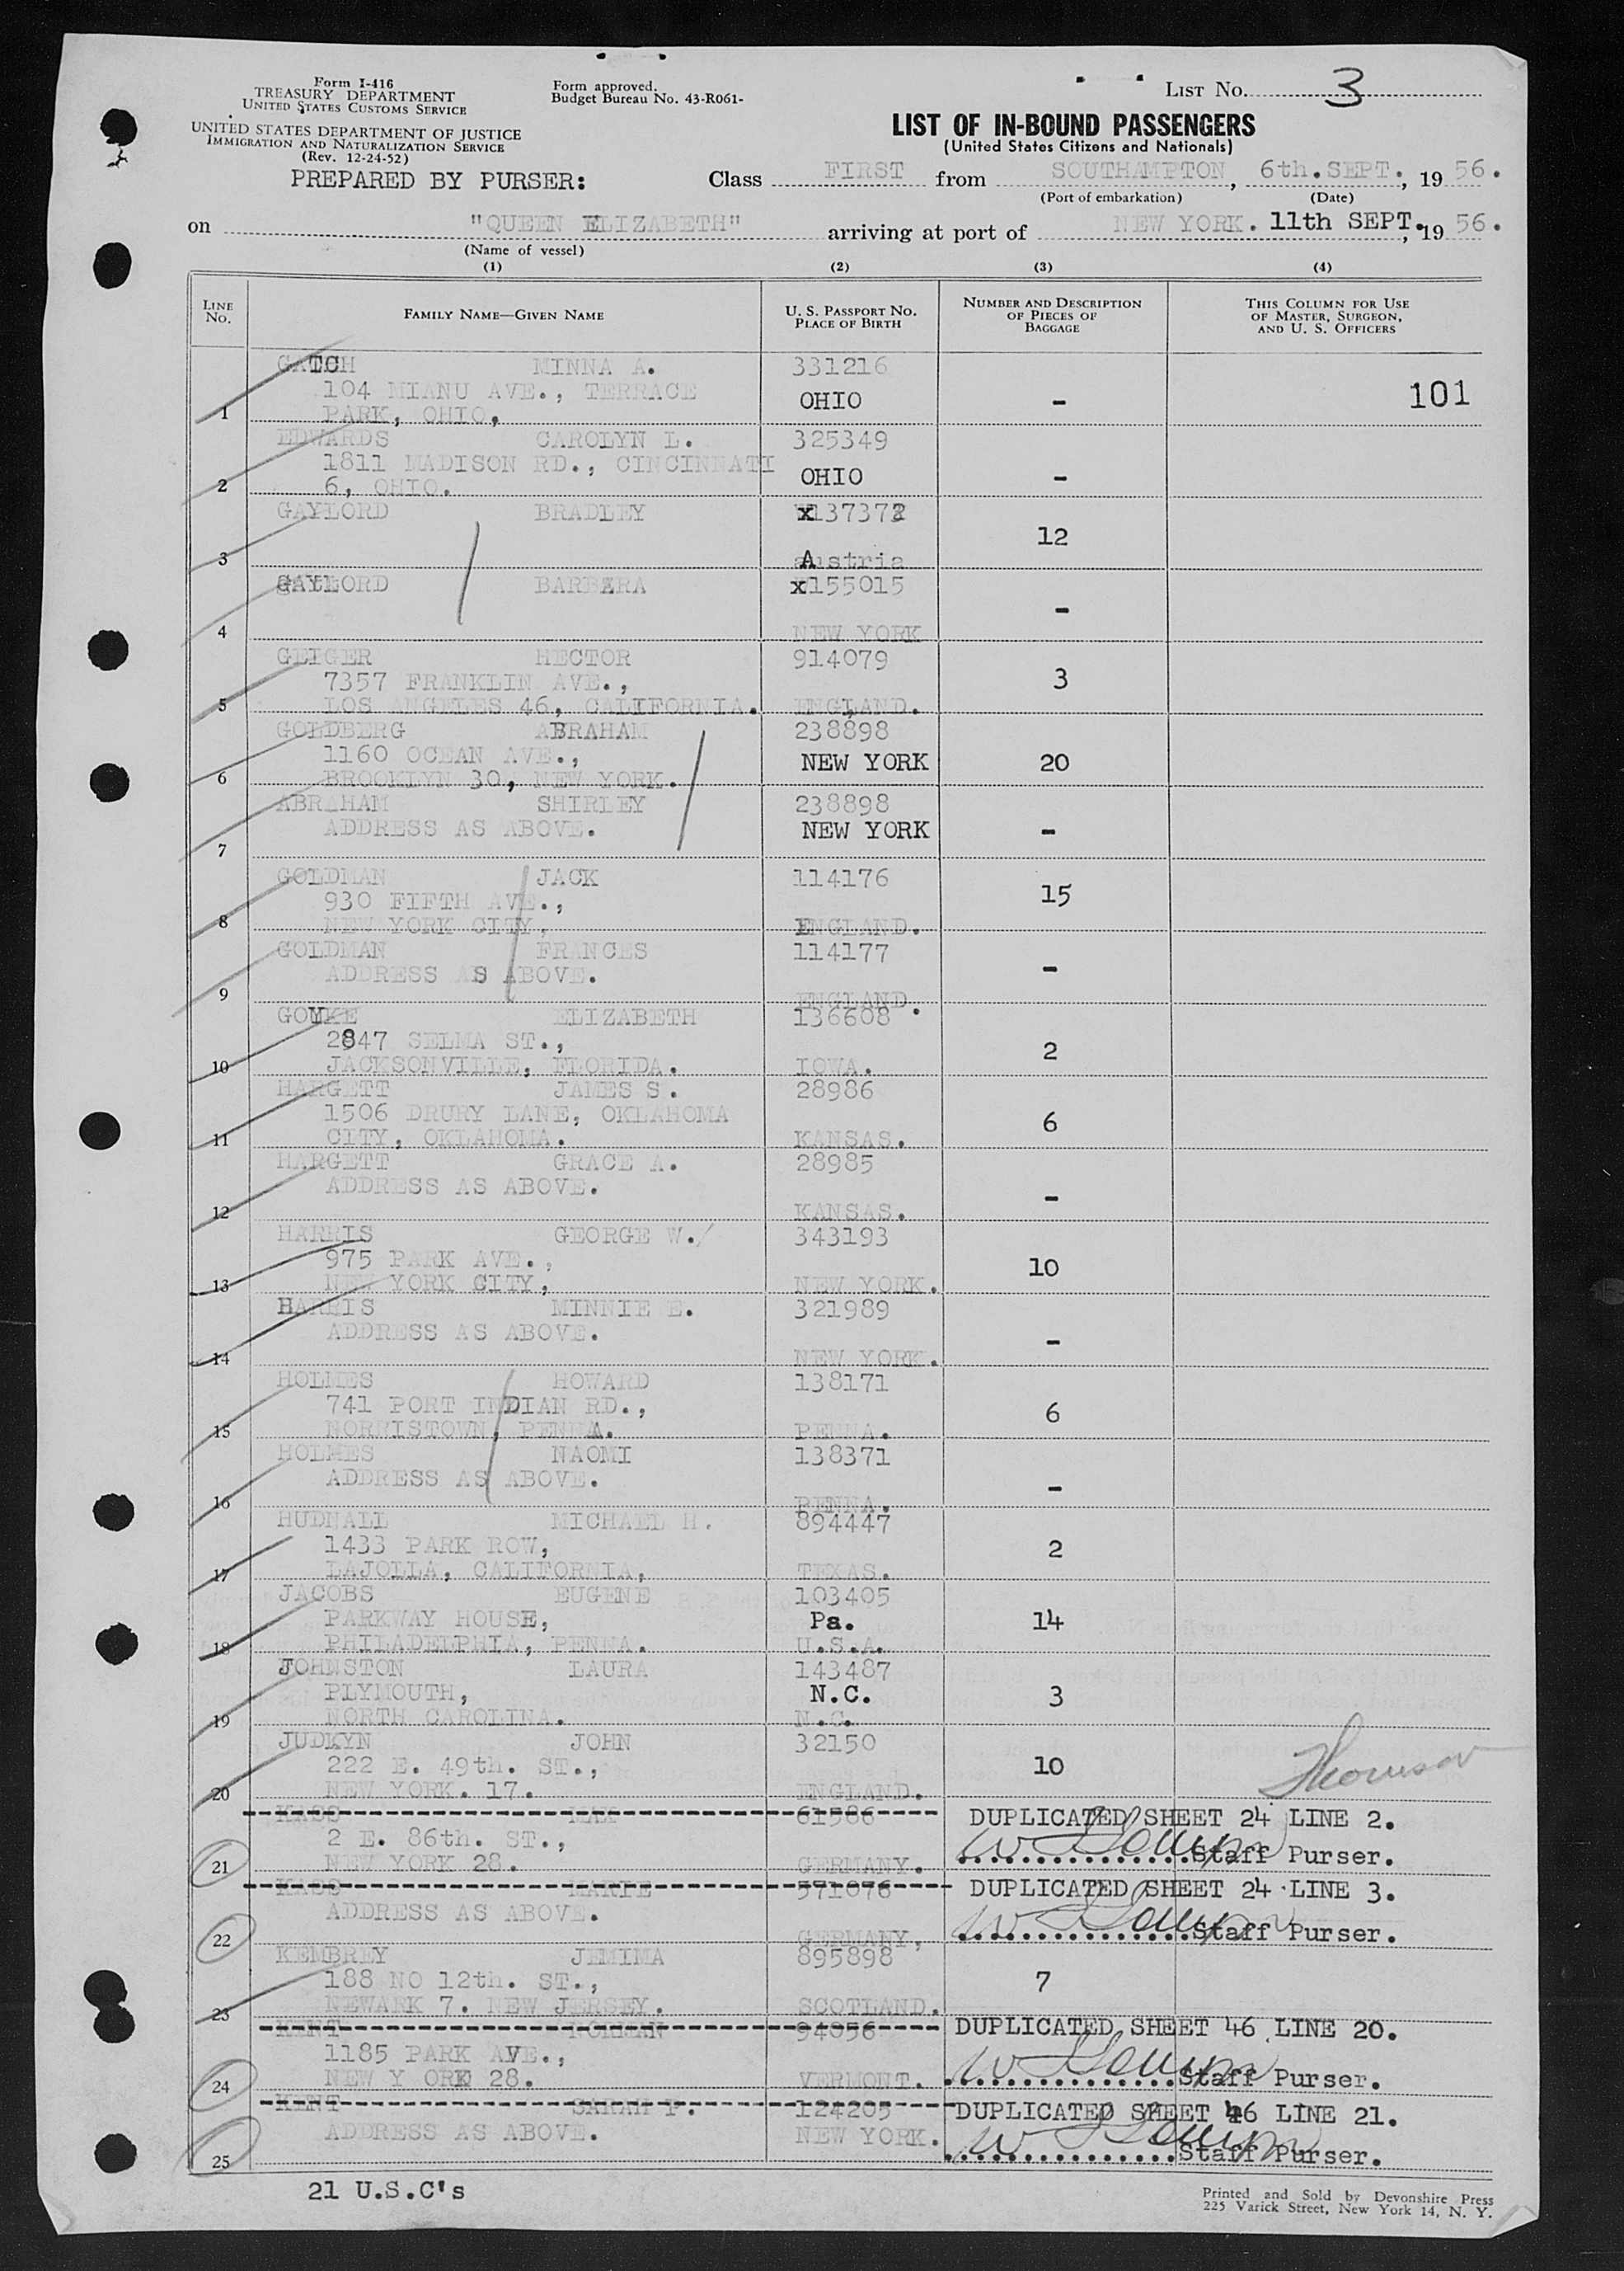 Form I-416
TREASURY DEPARTMENT
UNITED STATES CUSTOMS SERVICE
UNITED STATES DEPARTMENT OF JUSTICE
IMMIGRATION AND NATURALIZATION SERVICE
(Rev. 12-24-52)
PREPARED BY PURSER:
Form approved.
Budget Bureau No. 43-R061-
LIST NO. 3
LIST OF IN-BOUND PASSENGERS
(United States Citizens and Nationals)
Class FIRST from SOUTHAMPTON, 6th.SEPT., 19 56.
(Port of embarkation) (Date)
on "QUEEN ELIZABETH" arriving at port of NEW YORK. 11th SEPT., 19 56.
(Name of vessel)
(1) (2) (3) (4)
LINE NO. FAMILY NAME—GIVEN NAME U. S. PASSPORT NO. PLACE OF BIRTH NUMBER AND DESCRIPTION OF PIECES OF BAGGAGE THIS COLUMN FOR USE OF MASTER, SURGEON, AND U. S. OFFICERS
GATCH MINNA A. 331216
104 MIANU AVE., TERRACE OHIO - 101
1 PARK, OHIO,
EDWARDS CAROLYN L. 325349
1811 MADISON RD., CINCINNATI OHIO -
2 6, OHIO.
GAYLORD BRADLEY x137372
12
3 Austria
GAYLORD BARBARA x155015
-
4 NEW YORK
GEIGER HECTOR 914079
7357 FRANKLIN AVE., 3
5 LOS ANGELES 46, CALIFORNIA. ENGLAND.
GOLDBERG ABRAHAM 238898
1160 OCEAN AVE., NEW YORK 20
6 BROOKLYN 30, NEW YORK.
ABRAHAM SHIRLEY 238898
ADDRESS AS ABOVE. NEW YORK -
7
GOLDMAN JACK 114176
930 FIFTH AVE., 15
8 NEW YORK CITY, ENGLAND.
GOLDMAN FRANCES 114177
ADDRESS AS ABOVE. -
9 ENGLAND.
GOYKE ELIZABETH 136608
2847 SELMA ST., 2
10 JACKSONVILLE, FLORIDA. IOWA.
HARGETT JAMES S. 28986
1506 DRURY LANE, OKLAHOMA 6
11 CITY, OKLAHOMA. KANSAS.
HARGETT GRACE A. 28985
ADDRESS AS ABOVE. -
12 KANSAS.
HARRIS GEORGE W. 343193
975 PARK AVE., 10
13 NEW YORK CITY, NEW YORK.
HARRIS MINNIE E. 321989
ADDRESS AS ABOVE. -
14 NEW YORK.
HOLMES HOWARD 138171
741 PORT INDIAN RD., 6
15 NORRISTOWN, PENNA. PENNA.
HOLMES NAOMI 138371
ADDRESS AS ABOVE. -
16 PENNA.
HUDNALL MICHAEL H. 894447
1433 PARK ROW, 2
17 LAJOLLA, CALIFORNIA, TEXAS.
JACOBS EUGENE 103405
PARKWAY HOUSE, Pa. 14
18 PHILADELPHIA, PENNA. U.S.A.
JOHNSTON LAURA 143487
PLYMOUTH, N.C. 3
19 NORTH CAROLINA. N.C.
JUDKYN JOHN 32150
222 E. 49th. ST., 10 Thomson
20 NEW YORK. 17. ENGLAND.
KASS MAX 61586 DUPLICATED SHEET 24 LINE 2.
2 E. 86th. ST., Staff Purser.
21 NEW YORK 28. GERMANY.
KASS MARIE 571076 DUPLICATED SHEET 24 LINE 3.
ADDRESS AS ABOVE. Staff Purser.
22 GERMANY,
KEMBREY JEMIMA 895898
188 NO 12th. ST., 7
23 NEWARK 7. NEW JERSEY. SCOTLAND.
KENT NORMAN 94056 DUPLICATED SHEET 46 LINE 20.
1185 PARK AVE.,
24 NEW Y ORK 28. VERMONT. Staff Purser.
KENT SARAH P. 124205 DUPLICATED SHEET 46 LINE 21.
ADDRESS AS ABOVE. NEW YORK.
25 Staff Purser.
21 U.S.C's
Printed and Sold by Devonshire Press
225 Varick Street, New York 14, N. Y.